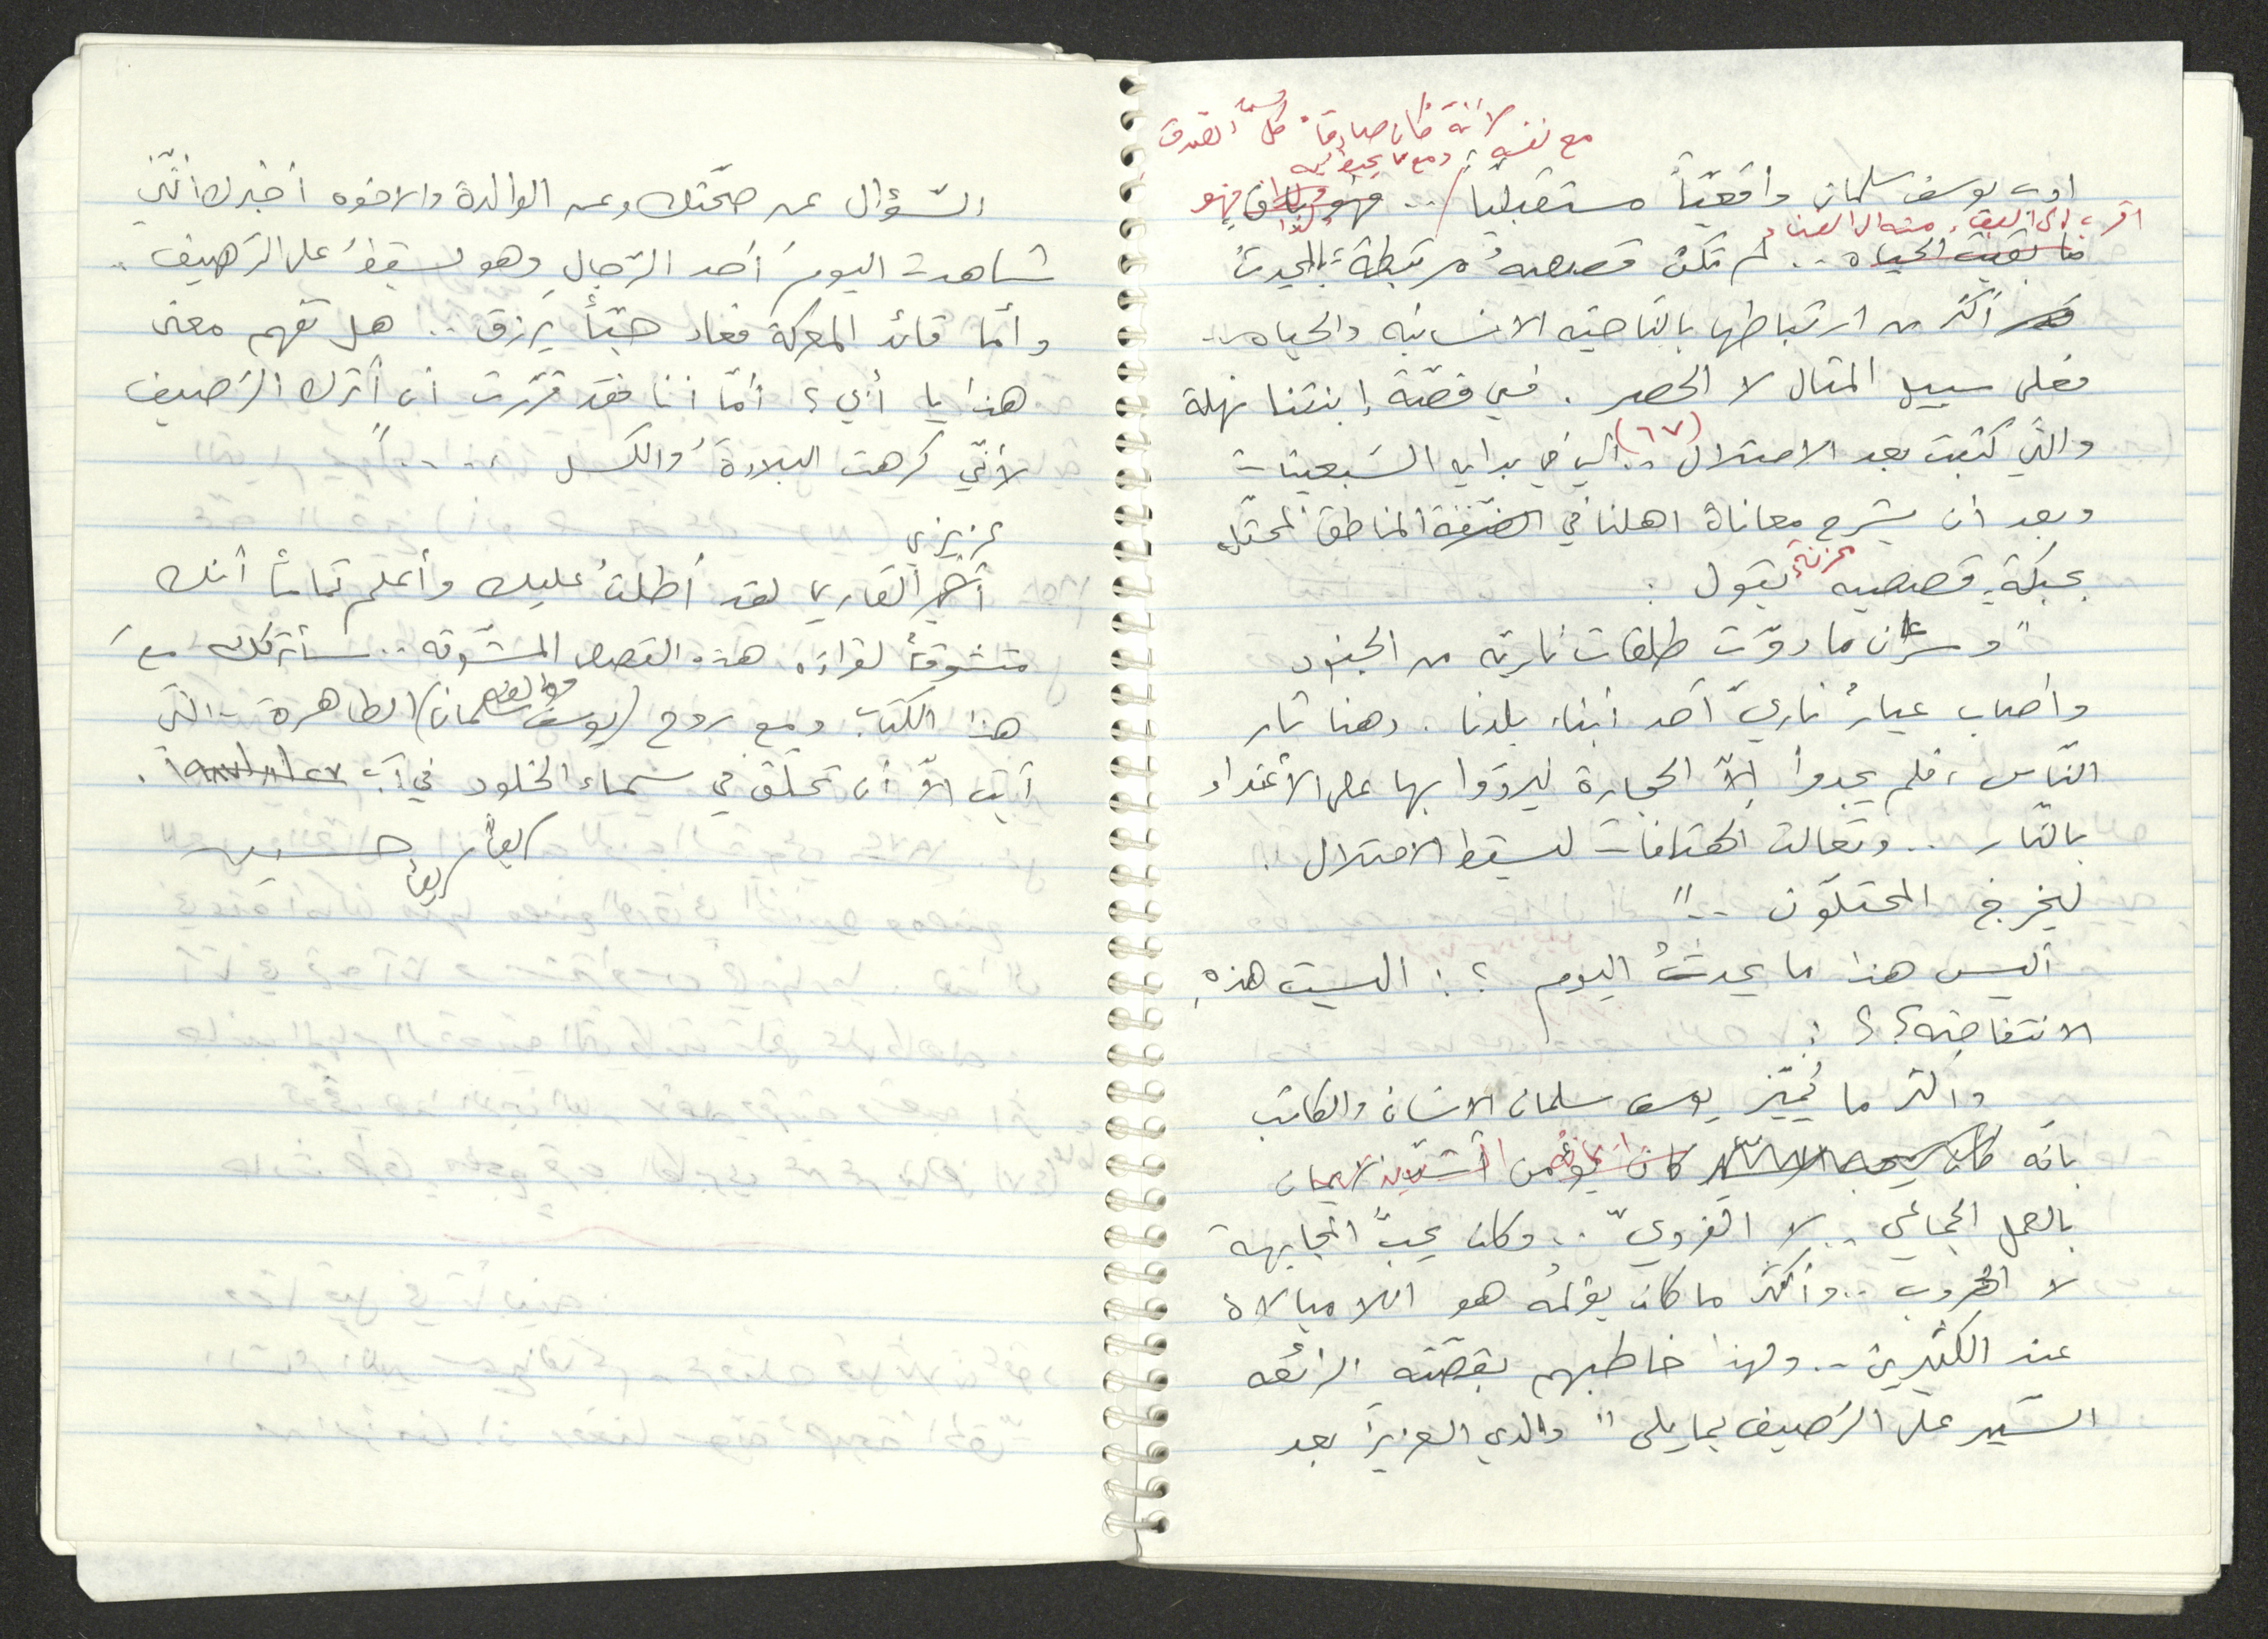 لأنّه كان صادقاً كل الصدق
مع نفسه ومع ما يحيط به
ادب يوسف سلمان واقعيّاً مستقبليّاً .. فهو باق فهو
اقرب إلى البقاء منه الى الفناء
ما بقيت الحياه .. لم تكن قصصيهُ مرتبطة بالحدث
أكثر من ارتباطها بالناحيه الانسانيه والحياه ..
فعلى سبيل المثال لا الحصر . ففي قصّة إبنتنا نهلة
والتي كتبت بعد الاحتلال (٦٧) .. اي في بدايه السّبعينات
وبعد أن يشرح معاناة اهلنا في الضفة المناطق المحتله
بحبكةٍ قصصيه محزنة يقول :
" وسرعان ما دوّت طلقات ناريّه من الجنود
وأصاب عيارُ ناريّ أحد أبناء بلدنا . وهنا ثار
النّاس ، فلم يجدوا إلاّ الحجارة ليردّوا بها على الأعداء
بالنّار .. وتعالت الهتافات ليسقط الاحتلال .
ليخرج المحتلّون .. "
أليس هذا ما يحدثُ اليوم ؟ ! اليست هذهِ
الانتفاضه ؟ ؟ !
واكثر ما يُميّز يوسف سلمان الانسان والكاتب
بأنّه كان يؤمن أشدّ الايمان
بالعمل الجماعي .. لا الفرديّ .. وكان يحبّ المجابهة
لا الهروب .. وأكثر ما كان يؤلمهُ هو اللامبالاة
عند الكثيرين .. ولهذا خاطبهم بقصّته الرائعه
السّير على الرّصيف بما يلي " والدي العزيز بعد
السّؤال عن صحّتك وعن الوالدة والاخوه أخبرك أنّني
شاهدت اليومَ أحد الرّجالِ وهو يسقطُ على الرّصيف ..
وأمّا قائد المعركة فعاد حيّاً يُرزق .. هل تفهم معنى
هذا يا أبي ؟ أمّا أنا فقد قرّرت أن أترك الرّصيف
لأنّي كرهت البلادةَ والكسل .... "
عزيزي
القارئ لقد أطلتُ عليك وأعلم تماماً أنك
متشوقاً لقراءه هذه القصص المشوّقه .. سأتركك مع
هذا الكتاب ومع روح (يوسف سلمان) الطاهرة .. التي
أبت الاّ أن تحلّق في سماء الخلود في آب ١٩٨٧/٨/٢٧ .